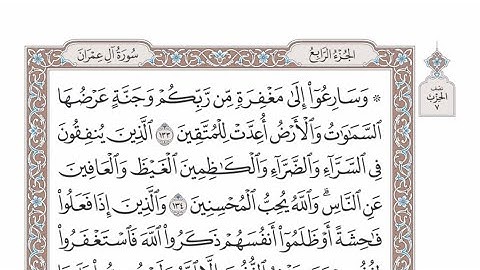 الجزء الرابع
سورة آل عمران
نصف
الحزب
٧
۞ وَسَارِعُوٓا۟ إِلَىٰ مَغْفِرَةٍ مِّن رَّبِّكُمْ وَجَنَّةٍ عَرْضُهَا
ٱلسَّمَٰوَٰتُ وَٱلْأَرْضُ أُعِدَّتْ لِلْمُتَّقِينَ ١٣٣ ٱلَّذِينَ يُنفِقُونَ
فِى ٱلسَّرَّآءِ وَٱلضَّرَّآءِ وَٱلْكَٰظِمِينَ ٱلْغَيْظَ وَٱلْعَافِينَ
عَنِ ٱلنَّاسِ ۗ وَٱللَّهُ يُحِبُّ ٱلْمُحْسِنِينَ ١٣٤ وَٱلَّذِينَ إِذَا فَعَلُوا۟
فَٰحِشَةً أَوْ ظَلَمُوٓا۟ أَنفُسَهُمْ ذَكَرُوا۟ ٱللَّهَ فَٱسْتَغْفَرُوا۟